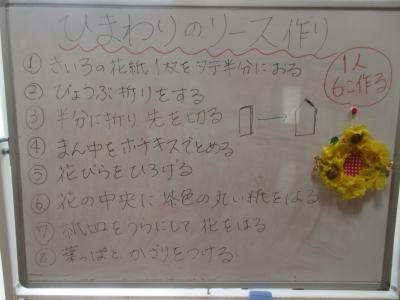 ひまわりのリース作り
① きいろの花紙1枚をタテ半分におる
② びょうぶ折りをする
③ 半分に折り 先を切る
④ まん中をホチキスでとめる
⑤ 花びらをひろげる
⑥ 花の中央に茶色の丸い紙をはる
⑦ 紙皿をうらにして花をはる
⑧ 葉っぱと かざりをつける
1人
6こ作る